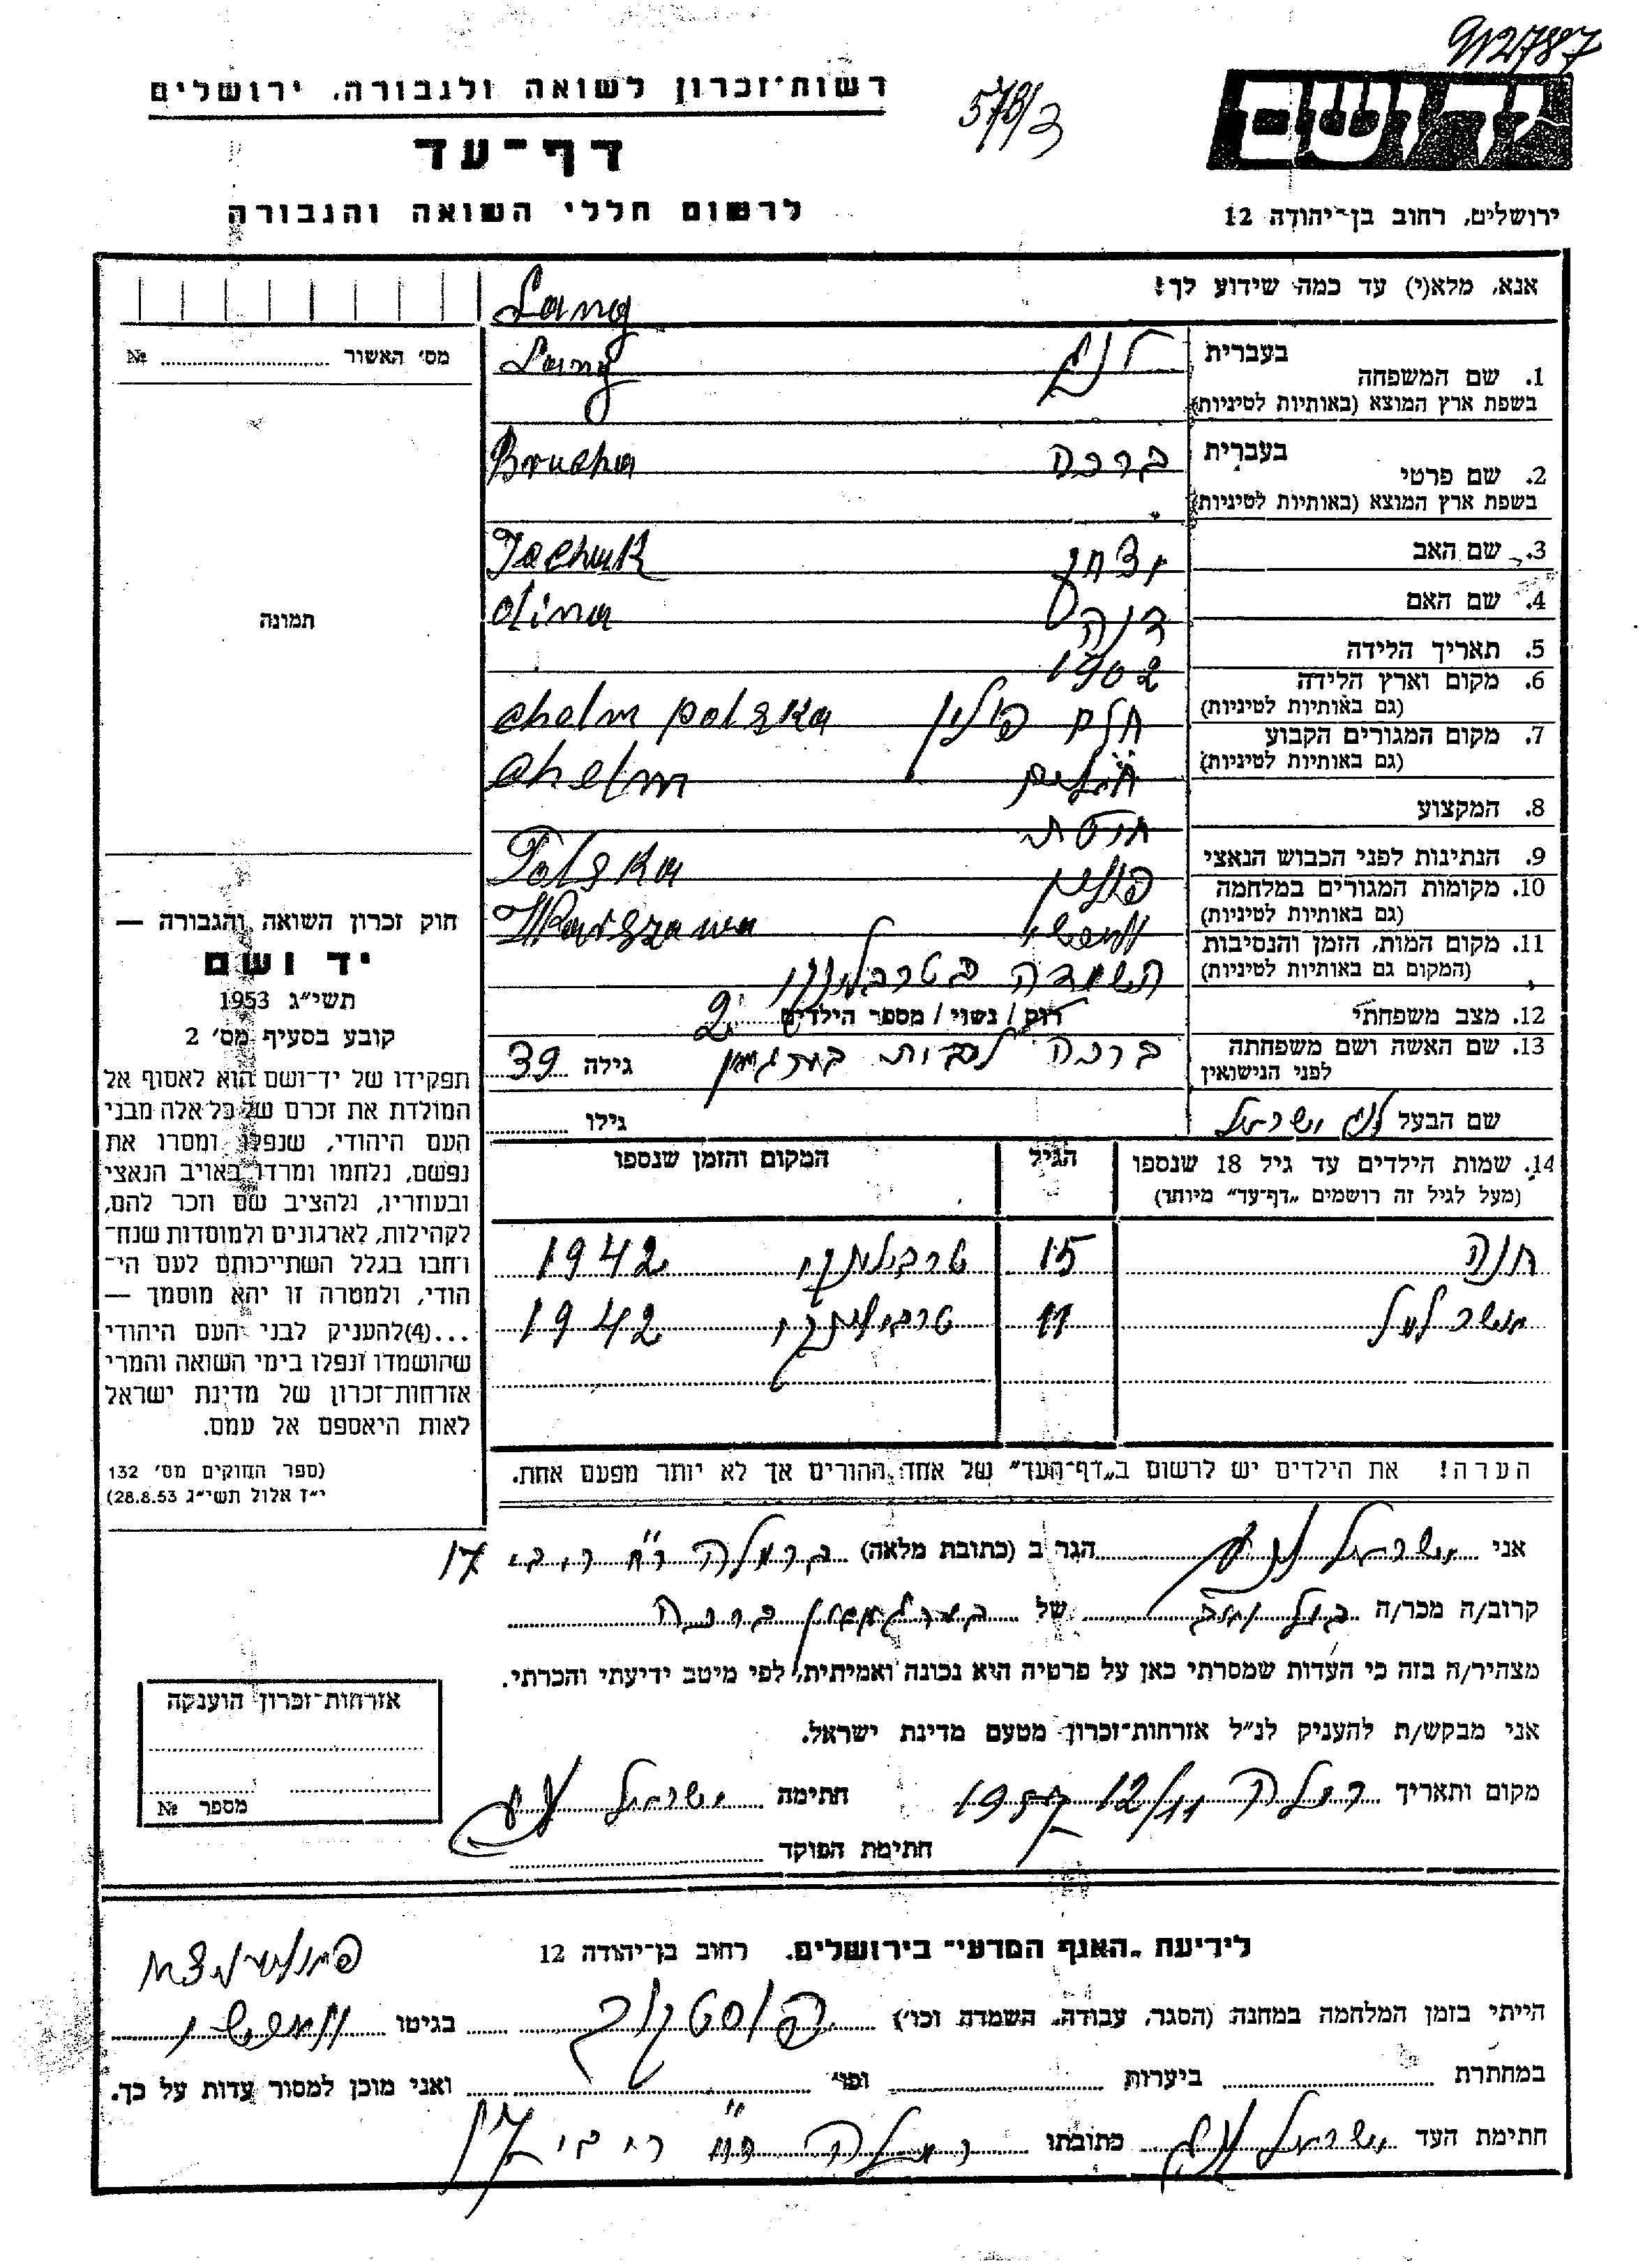 912787
רשות־זכרון לשואה ולגבורה, ירושלים
573/3
יד ושם
דף־עד
לרשום חללי השואה והגבורה
ירושלים, רחוב בן־יהודה 12
אנא, מלא(י) עד כמה שידוע לך!
Lang
מס׳ האשור № 
1. שם המשפחה
בעברית לנג Lang
בשפת ארץ המוצא (באותיות לטיניות)
2. שם פרטי
בעברית ברכה Brucha
בשפת ארץ המוצא (באותיות לטיניות)
3. שם האב יצחק
4. שם האם דינה dina
5. תאריך הלידה 1902
6. מקום וארץ הלידה חלם פולין chelm polska
(גם באותיות לטיניות)
7. מקום המגורים הקבוע chelm
(גם באותיות לטיניות)
8. המקצוע
9. הנתינות לפני הכבוש הנאצי פולין Polska
10. מקומות המגורים במלחמה Warszawa
(גם באותיות לטיניות)
11. מקום המות, הזמן והנסיבות
(המקום גם באותיות לטיניות)
12. מצב משפחתי רוק / נשוי / מספר הילדים 2
13. שם האשה ושם משפחתה ברכה לבית גילה 39
לפני הנישואין
שם הבעל לנג ישראל גילו
14. שמות הילדים עד גיל 18 שנספו הגיל המקום והזמן שנספו
(מעל לגיל זה רושמים „דף־עד” מיוחד)
חנה 15 טרבלינקי 1942
11 טרבלינקי 1942
הערה! את הילדים יש לרשום ב„דף־העד” של אחד ההורים אך לא יותר מפעם אחת.
תמונה
חוק זכרון השואה והגבורה —
יד ושם
תשי״ג 1953
קובע בסעיף מס׳ 2
תפקידו של יד־ושם הוא לאסוף אל
המולדת את זכרם של כל אלה מבני
העם היהודי, שנפלו ומסרו את
נפשם, נלחמו ומרדו באויב הנאצי
ובעוזריו, ולהציב שם וזכר להם,
לקהילות, לארגונים ולמוסדות שנח־
רחבו בגלל השתייכותם לעם הי־
הודי, ולמטרה זו יהא מוסמך —
...(4) להעניק לבני העם היהודי
שהושמדו ונפלו בימי השואה והמרי
אזרחות־זכרון של מדינת ישראל
לאות היאספם אל עמם.
(ספר החוקים מס׳ 132
י״ז אלול תשי״ג 28.8.53)
אני ישראל לנג הגר ב (כתובת מלאה) ברמלה 17
קרוב/ה מכר/ה של ברכה
מצהיר/ה בזה כי העדות שמסרתי כאן על פרטיה היא נכונה ואמיתית, לפי מיטב ידיעתי והכרתי.
אני מבקש/ת להעניק לנ״ל אזרחות־זכרון מטעם מדינת ישראל.
מקום ותאריך רמלה 12/11 חתימה ישראל לנג
חתימת הפוקד
אזרחות־זכרון הוענקה
מספר №
לידיעת „האגף המדעי” בירושלים, רחוב בן־יהודה 12
הייתי בזמן המלחמה במחנה (הסגר, עבודה, השמדה וכו׳) בגיטו
במחתרת ביערות וכו׳ ואני מוכן למסור עדות על כך.
חתימת העד ישראל לנג כתובתו רמלה 17